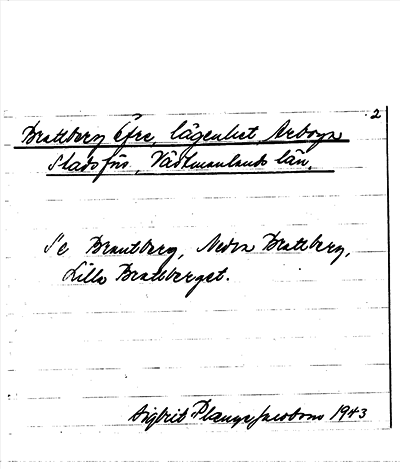 2
Brattberg Öfre, lägenhet, Arboga
Stadsförs, Västmanlands län.
Se Brantberg, Nedra Brattberg,
Lilla Brattberget.
Sigbrit Plange Jacobson 1943